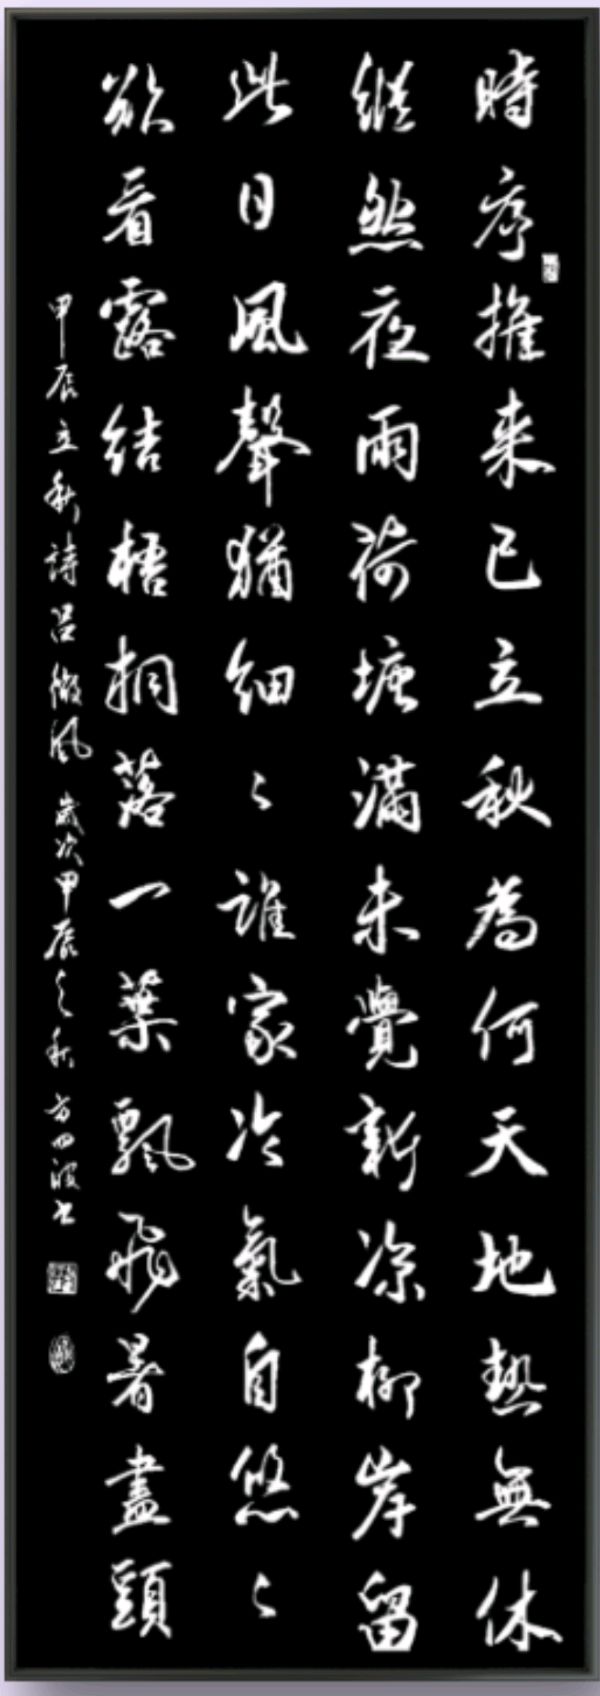 時序推來已立秋為何天地熱無休
縱然夜雨荷塘滿未覺新涼柳岸留
此日風聲猶細〻誰家冷氣自悠〻
欲看露結梧桐落一葉飄飛暑盡頭
甲辰立秋詩呂微風歲次甲辰之秋方四淑書